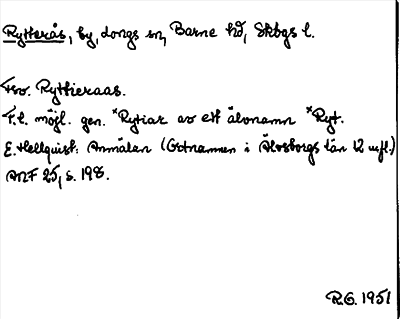 Rytterås, by, Longs sn, Barne hd, Skbgs l.
Fsv. Rythieraas.
F.l. möjl. gen. *Rytiar av ett älvnamn *Ryt.
E. Hellquist: Anmälan (Ortnamnen i Älvsborgs län 12 mfl.)
ANF 25, s. 198.
R.G. 1951